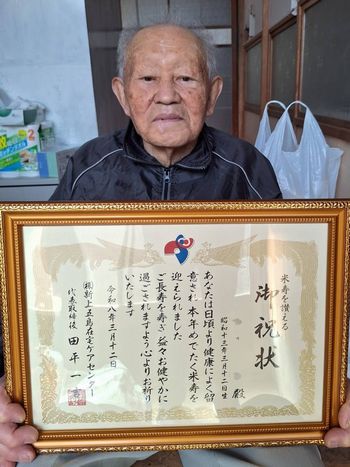 米寿を讃える
御祝状
殿
昭和十三年三月十二日生
あなたは日頃より健康によく留
意され本年めでたく米寿を
迎えられました
ご長寿を寿ぎ益々お健やかに
過ごされますよう心よりお祈り
いたします
令和八年三月十二日
㈱新上五島在宅ケアセンター
代表取締役 田平一